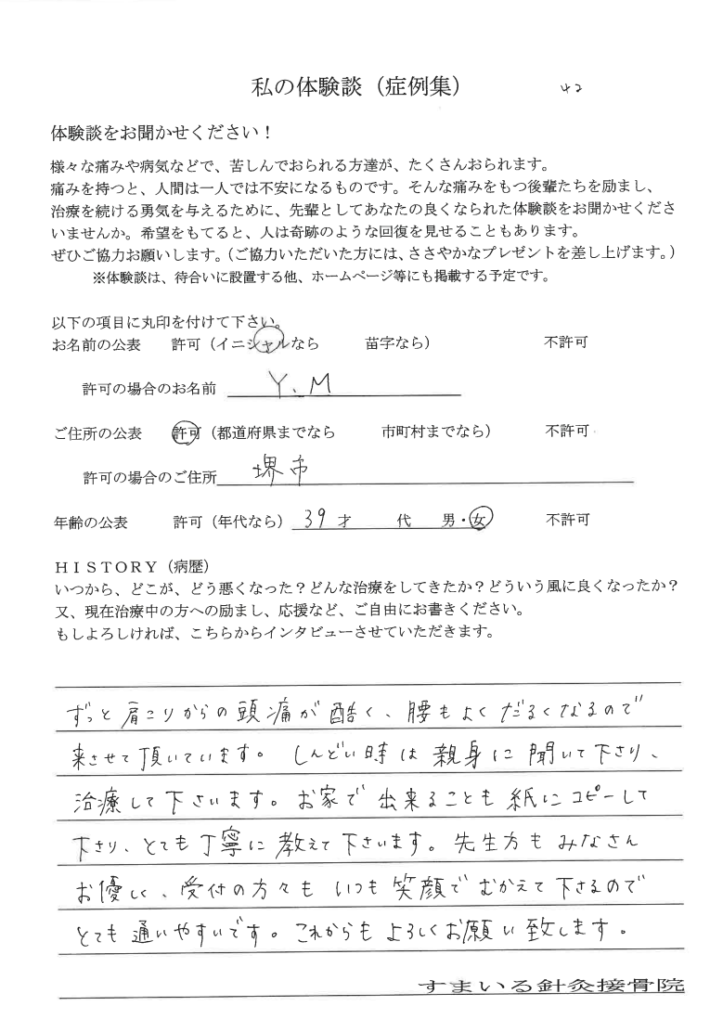 私の体験談（症例集） 42
体験談をお聞かせください！
様々な痛みや病気などで、苦しんでおられる方達が、たくさんおられます。
痛みを持つと、人間は一人では不安になるものです。そんな痛みをもつ後輩たちを励まし、
治療を続ける勇気を与えるために、先輩としてあなたの良くなられた体験談をお聞かせくださ
いませんか。希望をもてると、人は奇跡のような回復を見せることもあります。
ぜひご協力お願いします。（ご協力いただいた方には、ささやかなプレゼントを差し上げます。）
※体験談は、待合いに設置する他、ホームページ等にも掲載する予定です。
以下の項目に丸印を付けて下さい。
お名前の公表 許可（イニシャルなら 苗字なら） 不許可
許可の場合のお名前 Y.M
ご住所の公表 許可（都道府県までなら 市町村までなら） 不許可
許可の場合のご住所 堺市
年齢の公表 許可（年代なら） 39才 代 男・女 不許可
ＨＩＳＴＯＲＹ（病歴）
いつから、どこが、どう悪くなった？どんな治療をしてきたか？どういう風に良くなったか？
又、現在治療中の方への励まし、応援など、ご自由にお書きください。
もしよろしければ、こちらからインタビューさせていただきます。
ずっと肩こりからの頭痛が酷く、腰もよくだるくなるので
来させて頂いています。しんどい時は親身に聞いて下さり、
治療して下さいます。お家で出来ることも紙にコピーして
下さり、とても丁寧に教えて下さいます。先生方もみなさん
お優しく、受付の方々もいつも笑顔でむかえて下さるので
とても通いやすいです。これからもよろしくお願い致します。
すまいる針灸接骨院